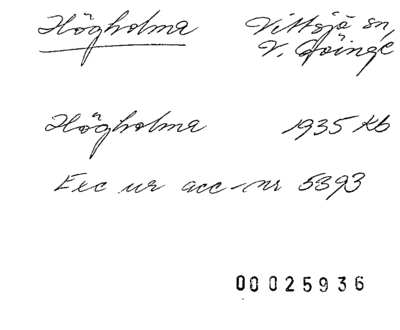 Högholma
Vittsjö sn,
V. Göinge
Högholma 1935 Kb
Exc ur acc-nr 5393
00025936